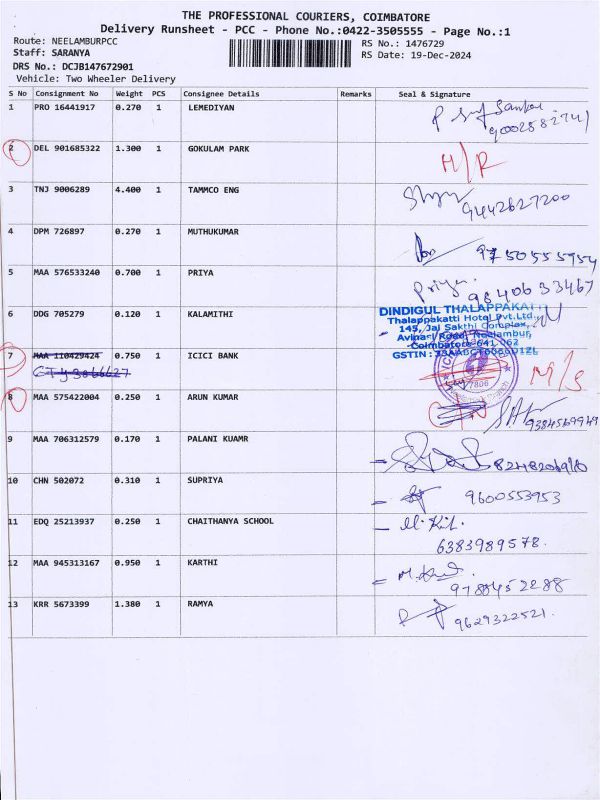 THE PROFESSIONAL COURIERS, COIMBATORE
Delivery Runsheet - PCC - Phone No.:0422-3505555 - Page No.:1
Route: NEELAMBURPCC
RS No.: 1476729
Staff: SARANYA
RS Date: 19-Dec-2024
DRS No.: DCJB147672901
Vehicle: Two Wheeler Delivery
S No Consignment No Weight PCS Consignee Details Remarks Seal & Signature
1 PRO 16441917 0.270 1 LEMEDIYAN
2 DEL 901685322 1.300 1 GOKULAM PARK H/R
3 TNJ 9006289 4.400 1 TAMMCO ENG 9442627200
4 DPM 726897 0.270 1 MUTHUKUMAR 9750555954
5 MAA 576533240 0.700 1 PRIYA Priya
9840633467
6 DDG 705279 0.120 1 KALAMITHI
DINDIGUL THALAPPAKATTI
Thalappakatti Hotel Pvt.Ltd.,
145, Jai Sakthi Complex,
Avinasi Road, Neelambur,
Coimbatore-641 062
7 MAA 110429424 0.750 1 ICICI BANK M/S
8 MAA 575422004 0.250 1 ARUN KUMAR 9384569949
9 MAA 706312579 0.170 1 PALANI KUAMR
10 CHN 502072 0.310 1 SUPRIYA 9600553953
11 EDQ 25213937 0.250 1 CHAITHANYA SCHOOL
6383989578.
12 MAA 945313167 0.950 1 KARTHI
9788452288
13 KRR 5673399 1.380 1 RAMYA 9629322521.